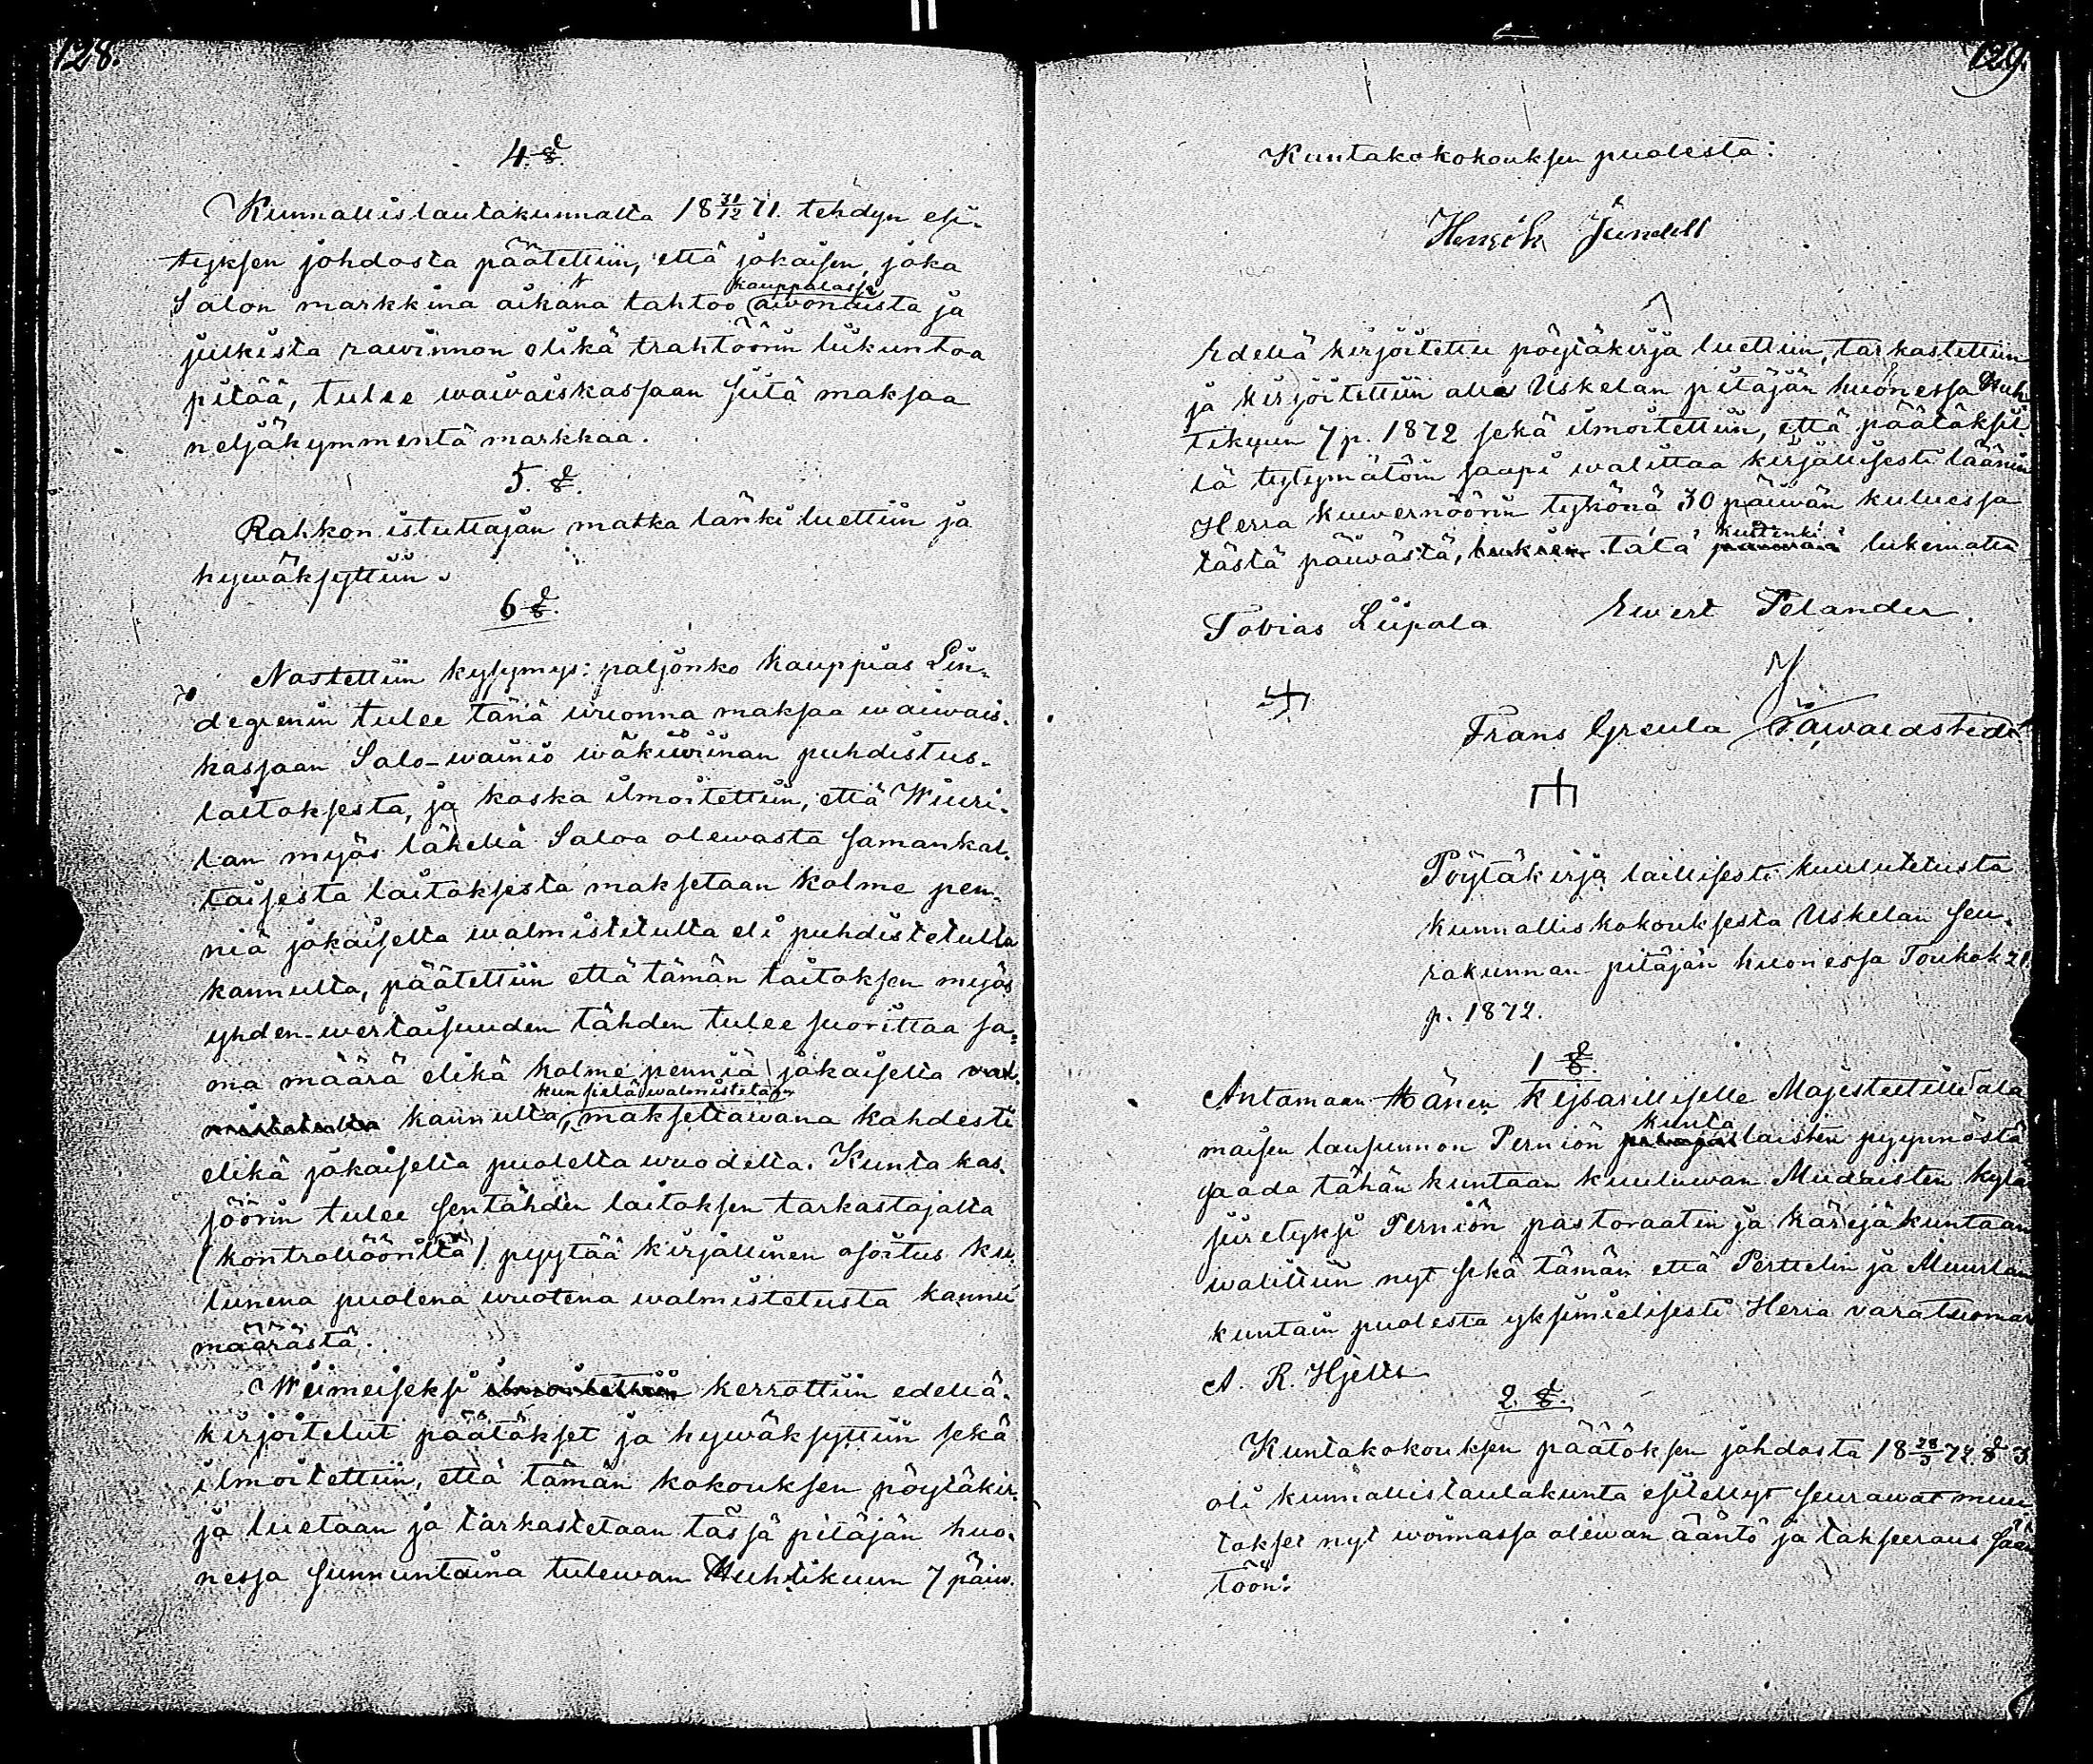 128.
4. §.
Kunnallislautakunnalta 18 31/12 71. tehdyn esi-
tyksen johdosta päätettiin, että jokaisen, joka
kauppalassa
Salon markkina aikana tahtoo awonaista ja
julkista rawinnon elikä trahtöörin liikuntoa
pitää, tulee waiwaiskassaan siitä maksaa
neljäkymmentä markkaa.
5. §.
Rahkon istuttajan matka länki luettiin ja
hywäksyttiin.
6 §.
Nostettiin kysymys: paljonko kauppias Lin-
degrenin tulee tänä wuonna maksaa waiwais-
kassaan Salo-wainio wäkiwiinan puhdistus-
laitoksesta, ja koska ilmoitettiin, että Wiuri-
lan myös lähellä Saloa olewasta samankal-
taisesta laitoksesta maksetaan kolme pen-
niä jokaiselta walmistetulta eli puhdistetulta
kannulta, päätettiin että tämän laitoksen myös
yhden-wertaisuuden tähden tulee suorittaa sa-
ma määrä elikä kolme penniä jokaiselta wal-
kun sielä walmistetaan
mistetulta kannulta, maksettawana kahdesti
elikä jokaiselta puolelta wuodelta. Kunta kas-
söörin tulee sentähden laitoksen tarkastajalta
(kontrollöörilta) pyytää kirjallinen osoitus ku-
lunena puolena wuotena walmistetusta kannu
määrästä.
Wiimeiseksi ilmoitettiin kerrottiin edellä-
kirjoitetut päätökset ja hywäksyttiin sekä
ilmoitettiin, että tämän kokouksen pöytäkir-
ja luetaan ja tarkastetaan tässä pitäjän huo-
nessa sunnuntaina tulewan Huhtikuun 7 päiw.
129.
Kuntakokokouksen puolesta:
Henrik Jundell
Edellä kirjoitettu pöytäkirja luettiin, tarkastettiin
ja kirjoitettiin alle Uskelan pitäjän huonessa Huh
tikuun 7 p. 1872 sekä ilmoitettiin, että päätöksii
lä tytymätöin saapi walittaa kirjallisesti läänin
Herra kuwernöörin tykönä 30 päiwän kuluessa
kuitenki
tästä päiwästä, lukien tätä päiwää lukematta
Tobias Liipola Ewert Pelander.
Frans Greula Tawaldstedt
Pöytäkirja laillisesti kuulutetusta
kunnalliskokouksesta Uskelan seu-
rakunnan pitäjän huonessa Toukok 21
p. 1872.
1 §.
Antamaan Hänen Keisarilliselle Majesteetille ala
kunta
maisen lausunnon Perniön pitäjäs laisten pyynnöstä
saada tähän kuntaan kuuluwan Mudaisten kylä
siiretyksi Perniön pastoraatin ja käräjäkuntaan
walittiin nyt sekä tämän että Perttelin ja Muurlan
kuntain puolesta yksimielisesti Herra varatuomar
A. R. Hjelts
2. §.
Kuntakokouksen päätöksen johdosta 18 28/3 72 § 3
oli kunnallislautakunta esitellyt seurawat muu
tokset nyt woimassa olewan ääntö ja takseeraus sään
töön: